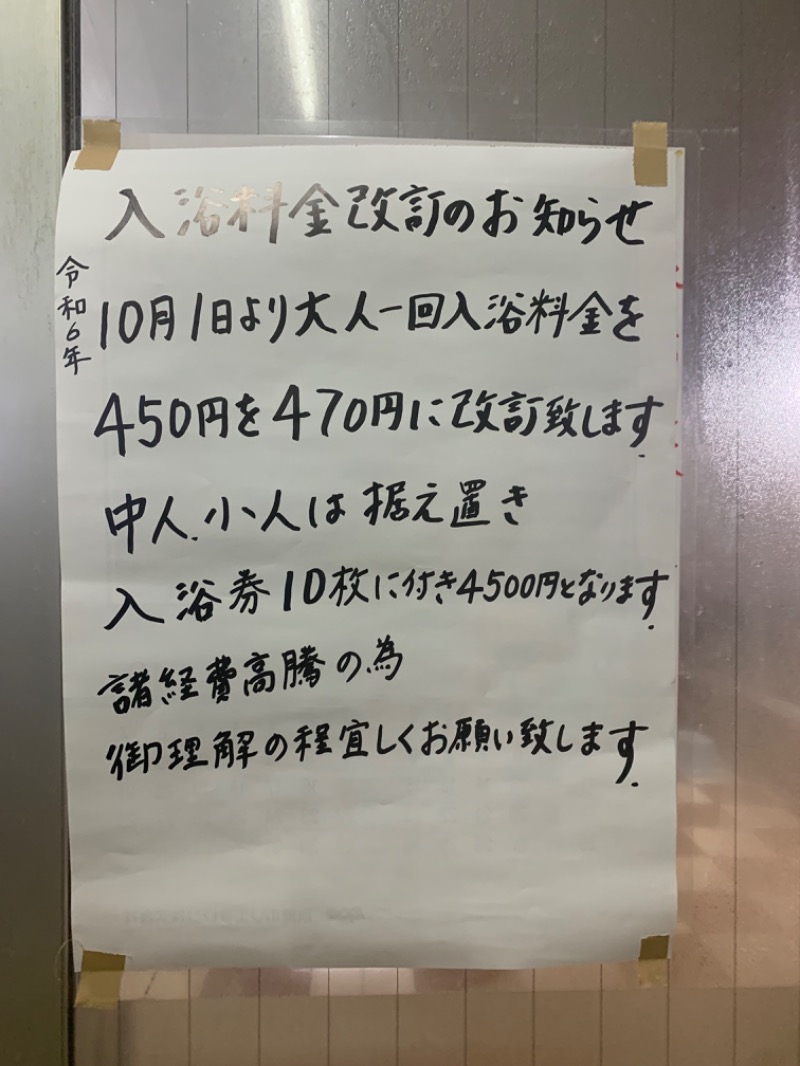 入浴料金改訂のお知らせ
令和6年
10月1日より大人一回入浴料金を
450円を470円に改訂致します.
中人.小人は据え置き
入浴券10枚に付き4500円となります.
諸経費高騰の為
御理解の程宜しくお願い致します.